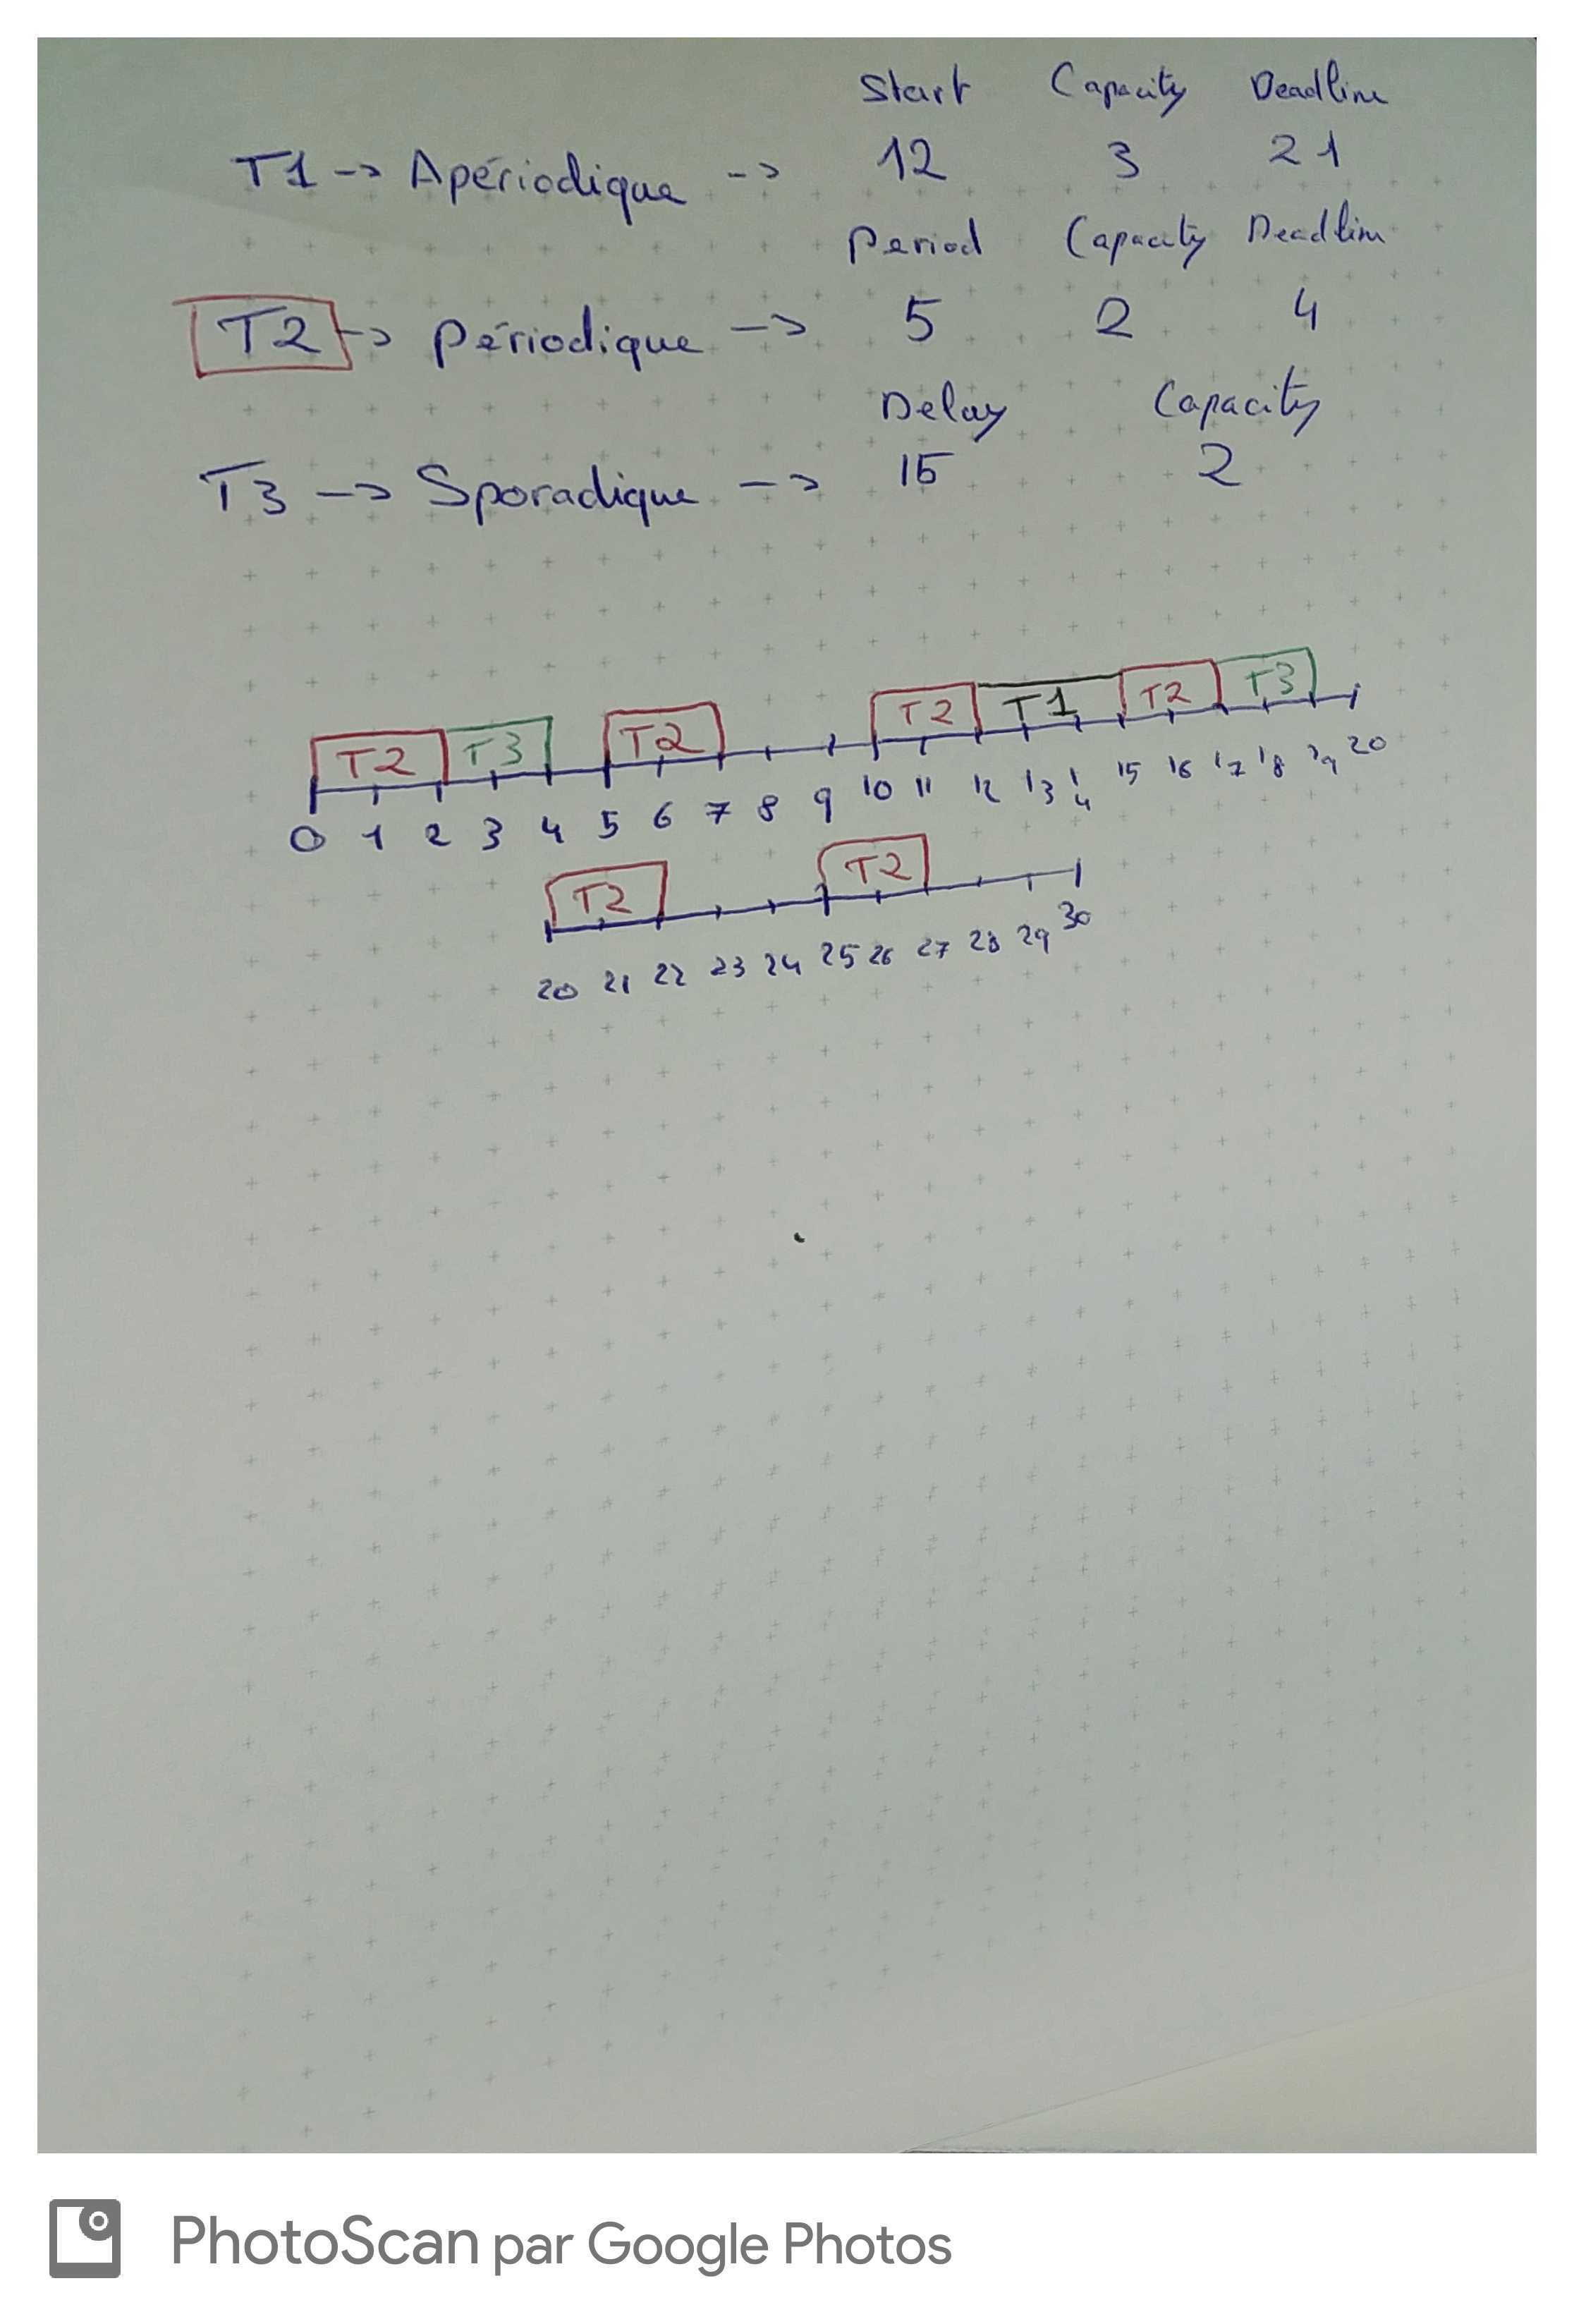 Start Capacity Deadline
T1 -> Apériodique -> 12 3 21
Period Capacity Deadline
T2 -> Périodique -> 5 2 4
Delay Capacity
T3 -> Sporadique -> 15 2
T2 T3 T2 T2 T1 T2 T3
0 1 2 3 4 5 6 7 8 9 10 11 12 13 14 15 16 17 18 19 20
T2 T2
20 21 22 23 24 25 26 27 28 29 30
PhotoScan par Google Photos